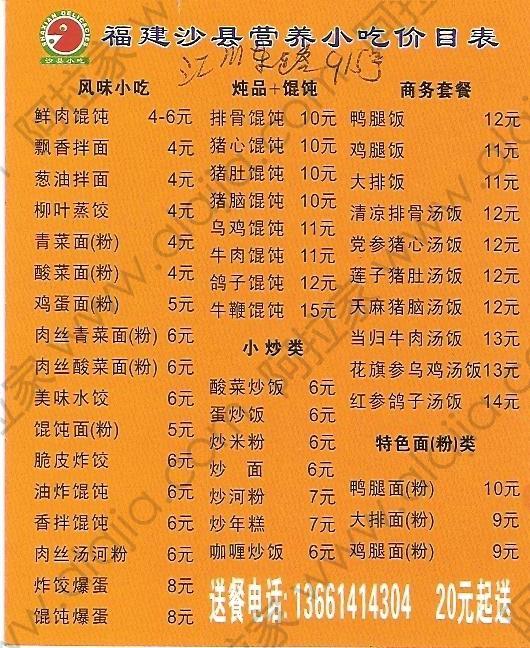 SHAXIAN DELICACIES
沙县小吃
福建沙县营养小吃价目表
江川东路915号
风味小吃
鲜肉馄饨 4-6元
飘香拌面 4元
葱油拌面 4元
柳叶蒸饺 4元
青菜面(粉) 4元
酸菜面(粉) 4元
鸡蛋面(粉) 5元
肉丝青菜面(粉) 6元
肉丝酸菜面(粉) 6元
美味水饺 6元
馄饨面(粉) 5元
脆皮炸饺 6元
油炸馄饨 6元
香拌馄饨 6元
肉丝汤河粉 6元
炸饺爆蛋 8元
馄饨爆蛋 8元
炖品+馄饨
排骨馄饨 10元
猪心馄饨 10元
猪肚馄饨 10元
猪脑馄饨 10元
乌鸡馄饨 11元
牛肉馄饨 11元
鸽子馄饨 12元
牛鞭馄饨 15元
小炒类
酸菜炒饭 6元
蛋炒饭 6元
炒米粉 6元
炒 面 6元
炒河粉 7元
炒年糕 7元
咖喱炒饭 6元
商务套餐
鸭腿饭 12元
鸡腿饭 11元
大排饭 11元
清凉排骨汤饭 12元
党参猪心汤饭 12元
莲子猪肚汤饭 12元
天麻猪脑汤饭 12元
当归牛肉汤饭 13元
花旗参乌鸡汤饭 13元
红参鸽子汤饭 14元
特色面(粉)类
鸭腿面(粉) 10元
大排面(粉) 9元
鸡腿面(粉) 9元
送餐电话: 13661414304 20元起送
阿拉家 www.alajia.com